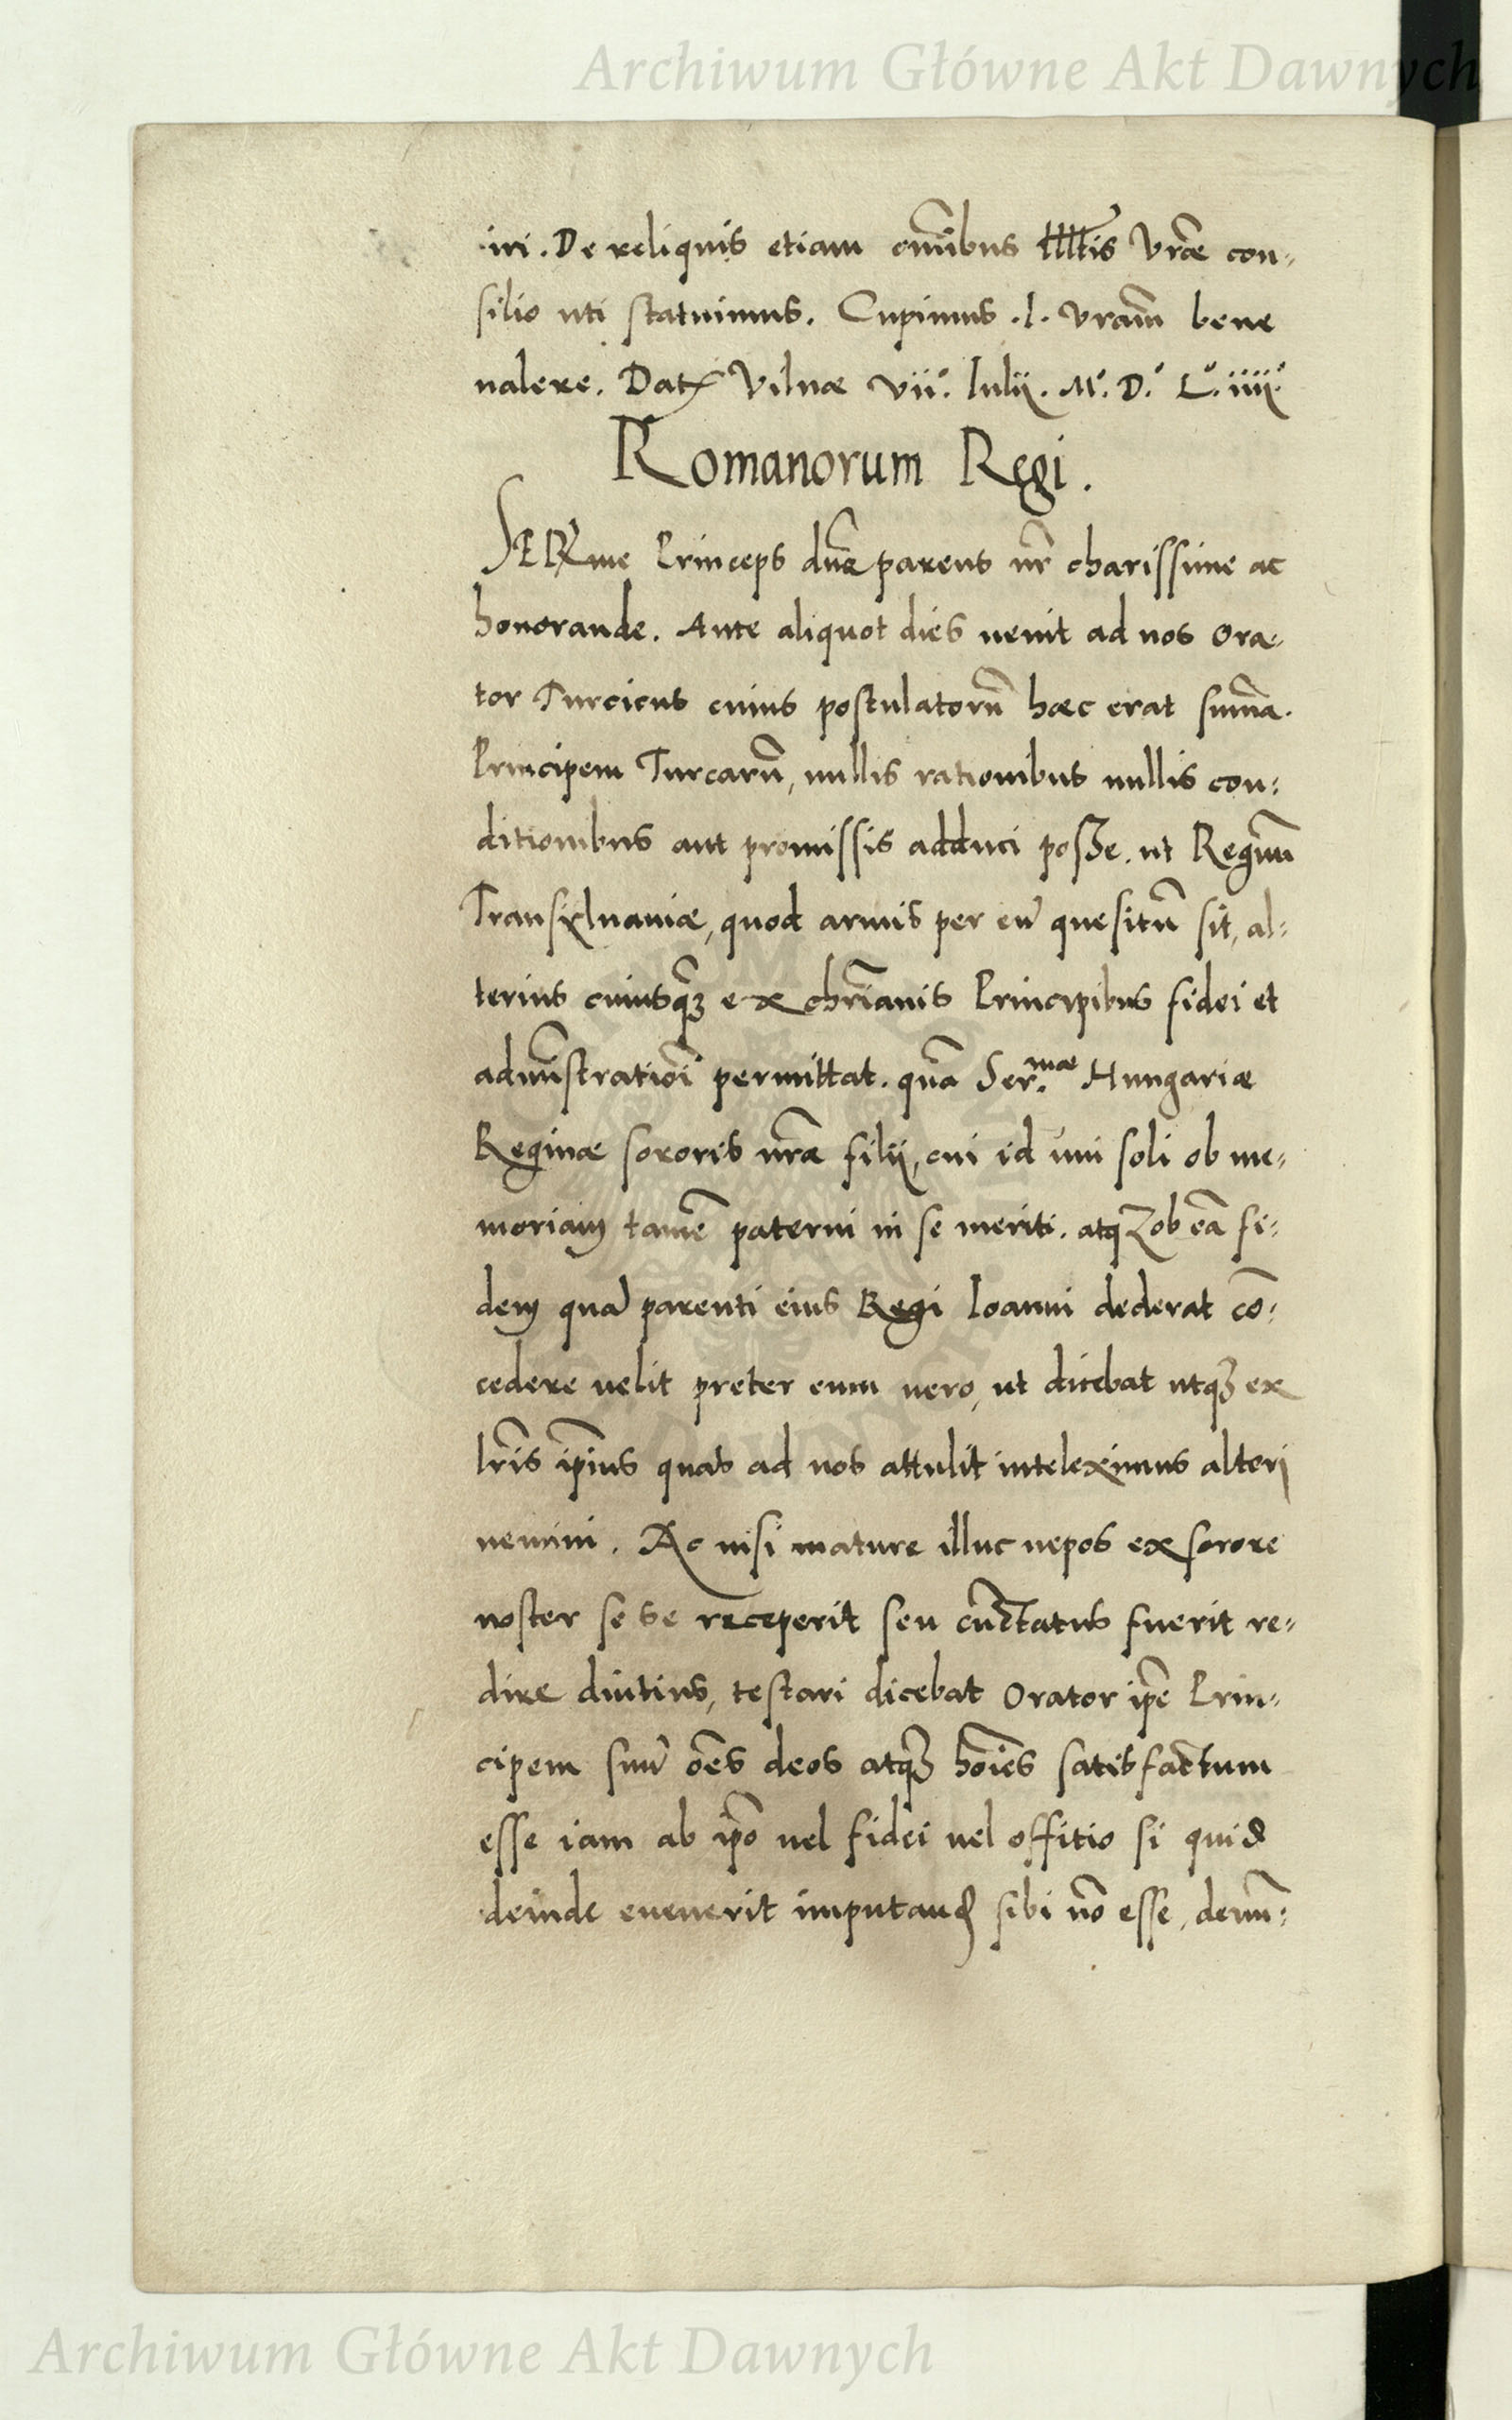 Archiwum Główne Akt Dawnych
iri. De reliquis etiam om̃ibus Vrãe con-
silio uti statuimus. Cupimus .I. Vram̃ bene
ualere. Dat Vilnae vii.° Iulii. M.° D.° L.° iiii.°
Romanorum Regi.
SERme Princeps dñe parens nr̃ charissime ac
honorande. Ante aliquot dies uenit ad nos Ora-
tor Turcicus cuius postulatorũ haec erat sum̃a.
Principem Turcarũ, nullis rationibus nullis con-
ditionibus aut promissis adduci posse. ut Regnum̃
Transyluaniae, quod armis per eũ quesitũ sit, al-
terius cuiusq̃ ex chrĩanis Principibus fidei et
admĩstratiõi permittat. quã Ser.mae Hungariae
Reginae sororis nrãe filii, cui id uni soli ob me-
moriam tamẽ paterni in se meriti. atq ob eã fi-
dem quã parenti eius Regi Ioanni dederat cõ-
cedere uelit preter eum uero, ut dicebat utq ex
lr̃is ip̃ius quas ad nos attulit intelleximus alteri
nemini. Ac nisi mature illuc nepos ex sorore
noster se se receperit seu cũctatus fuerit re-
dire diutius, testari dicebat Orator ip̃e Prin-
cipem suũ oẽs deos atq hoĩes satisfactum
esse iam ab ip̃o uel fidei uel offitio si quid
deinde euenerit imputand sibi nõ esse, denũ-
Archiwum Główne Akt Dawnych